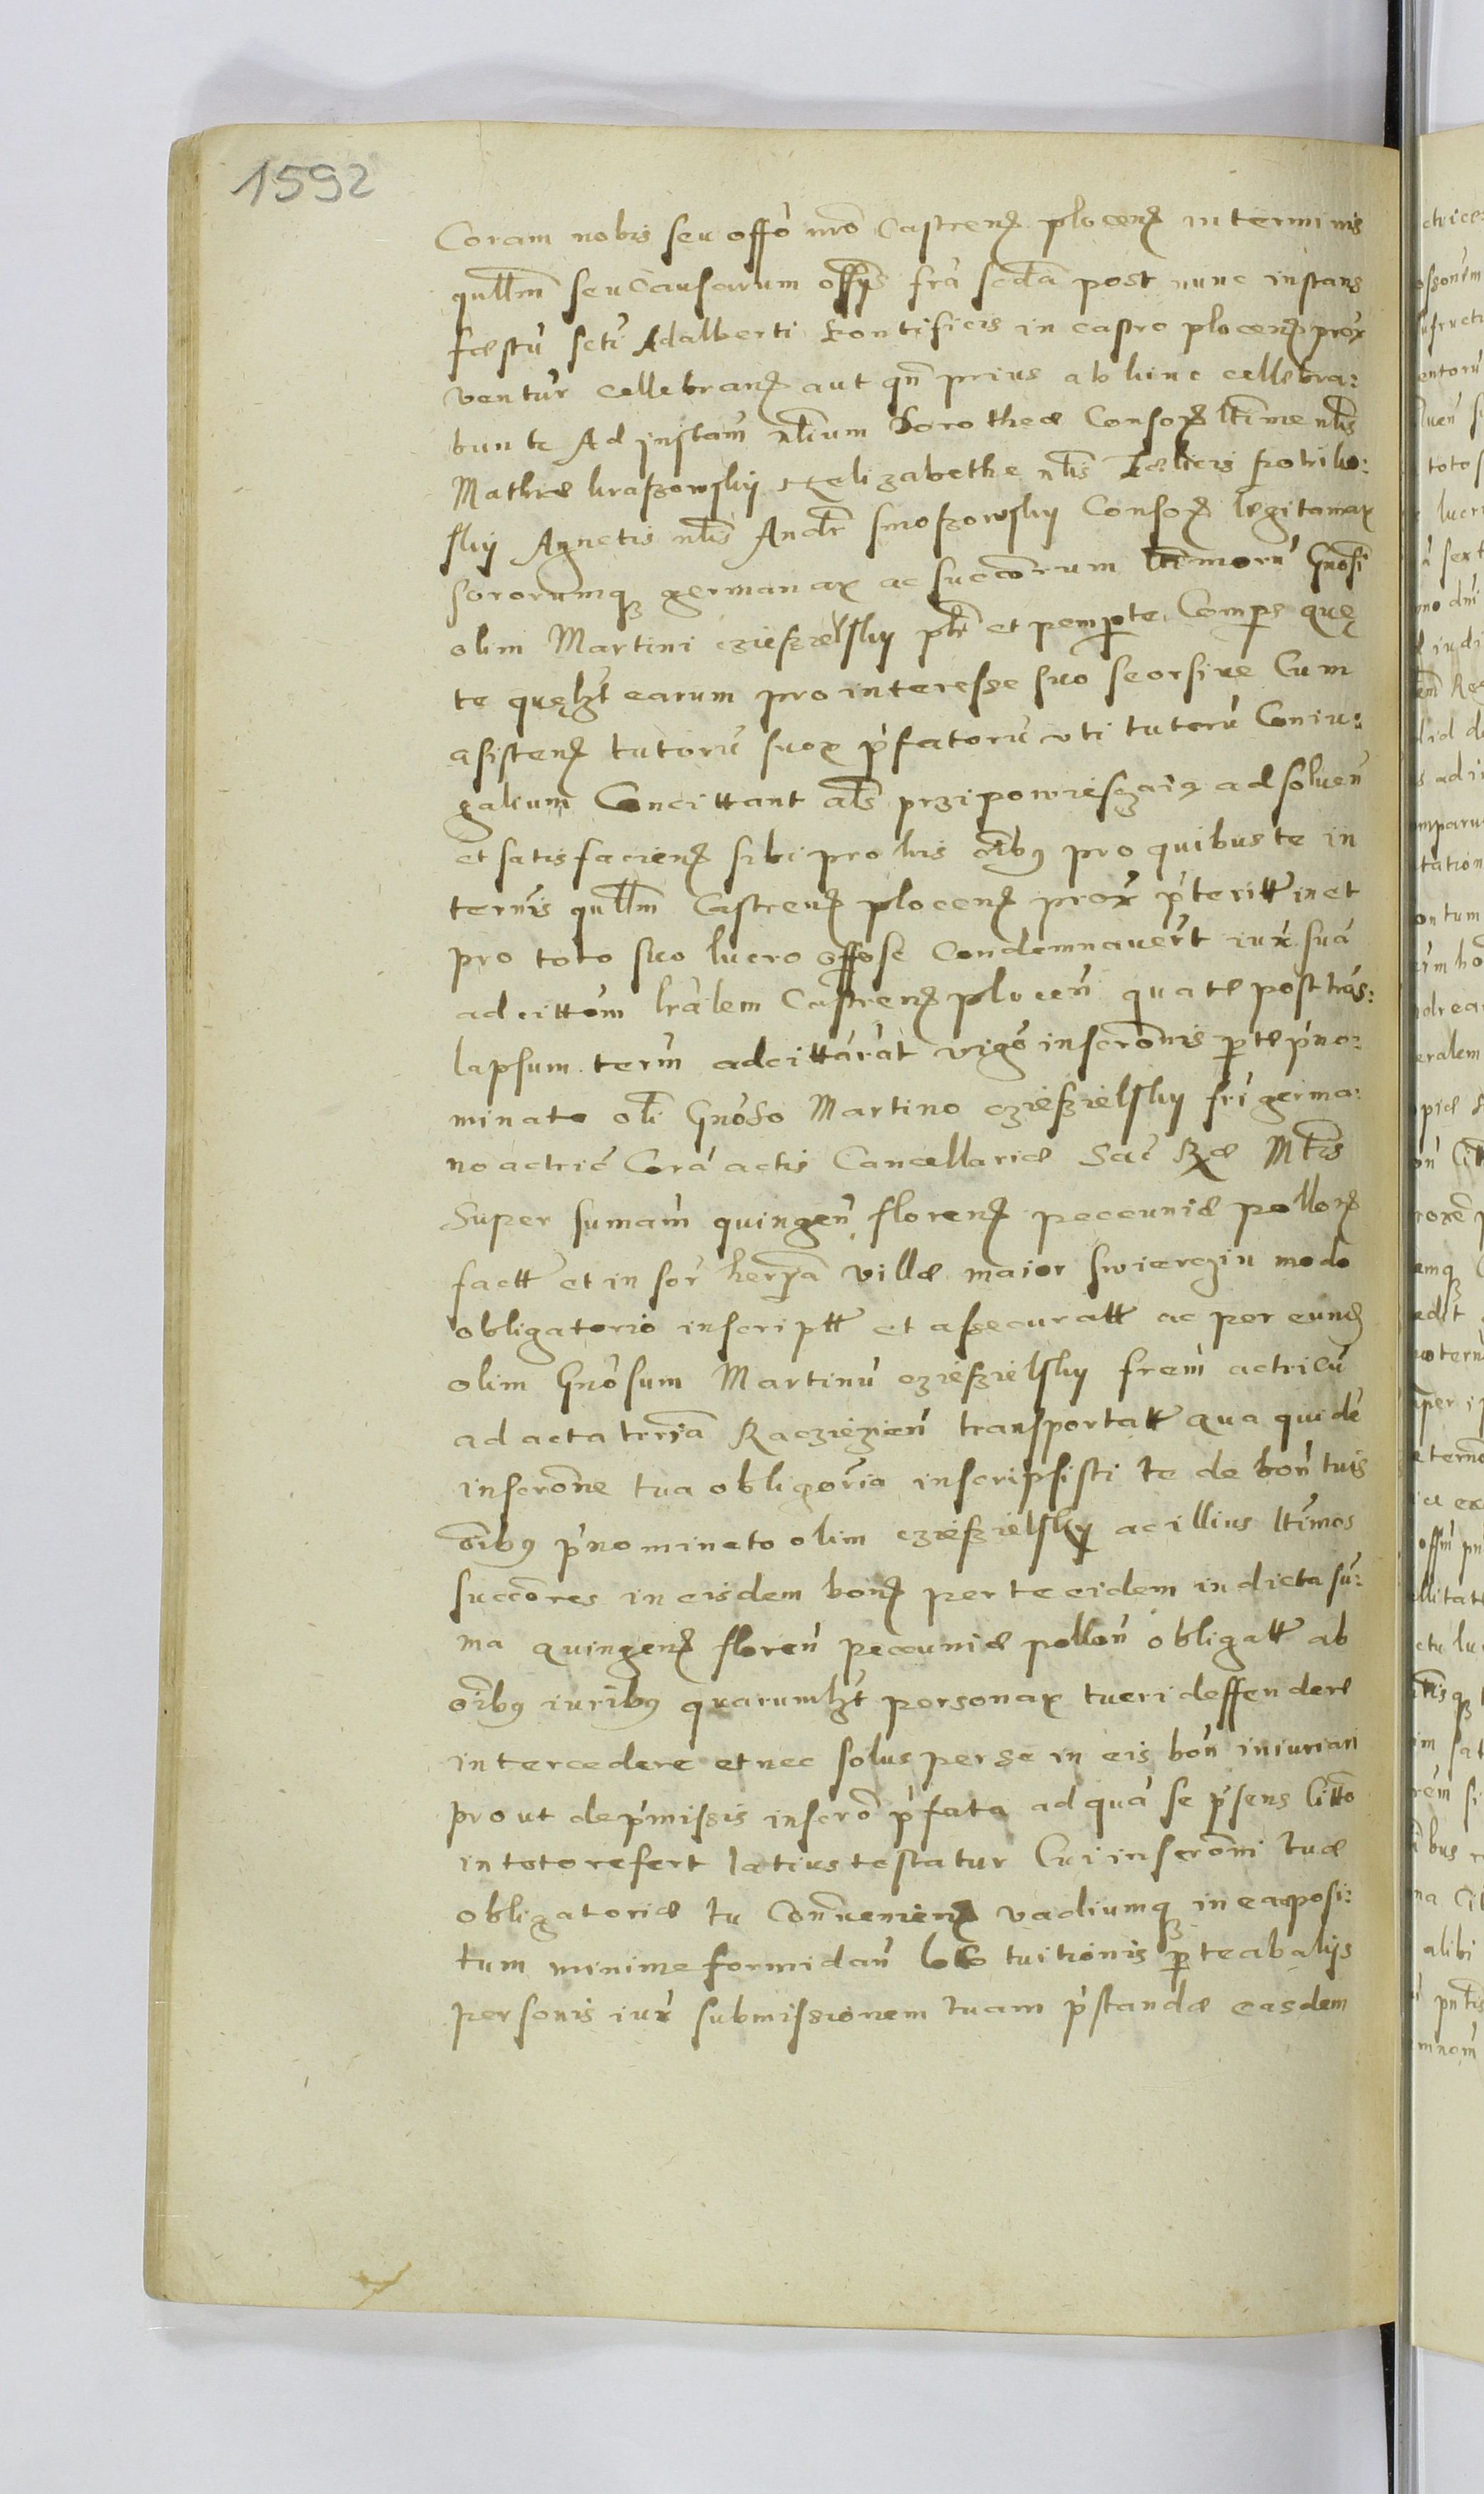 1592
Coram nobis seu offō nrō Castren̄ plocen̄ in terminis
qūllm̄ seu Causarum offys fr̄a scd̄a post nunc instans
fæstū sctī Adalberti Pontificis in castro plocen̄ prox̄
ventūr cellebran̄ aut qn̄ prius ab hinc cellebra:
buntr Ad instam̄ nl̄ium Dorotheæ Consor̄ lt̄imæ nl̄is
Mathiæ krassowsky elizabethe nl̄is Fælicis
sky Agnetis nl̄is Andr̄ smoszowsky Consor̄ legitamar̄
sororumq̄ germanar̄ ac succōrum lt̄imorū Gnōsi
olim Martini czieszielsky pl̄r et pemp̄te, Comp̄s quę
te quęlz̄t earum pro interesse suo seorsiue Cum
asisten̄ tutorū suor̄ p̄fatorū vti tutorū Coniu:
galium Concittant al̄s przipowiesczaią ad soluen̄
et satisfacien̄ sibi pro his oīb9 pro quibus te in
term̄is qūllm̄ Castren̄ plocen̄ prox̄ p̄teritt in et
pro toto suo lucro offose Condemnauer̄t iux̄ suā
adcittōm lr̄alem Castren̄ plocen̄ qua te post trās:
lapsum term̄ adcittārat vigō inscrōnis p̄ te p̄no:
minato oli Gnōso Martino czieszielsky fri germa:
no actric̄ Corā actis Cancellariæ Sac̄ R̄æ Mt̄is
super sumam̄ quingen̄ floren̄ peccuniæ pollon̄
factt et in sor̄ herp̄a villæ maior swierczin modo
obligatorio inscriptt et assecuratt ac per eund̄
olim Gnōsum Martinū czieszielsky frem̄ actricū
ad acta trr̄ia Raczięzien̄ transportatt qua quidē
inscrōne tua obligōria inscripsisti te de bon̄ tuis
oīb9 p̄nominato olim czieszielsky ac illius lt̄imos
succōres in eisdem bon̄ per te eidem in dicta sū:
ma quingen̄ floren̄ peccuniæ pollon̄ obligatt ab
oīb9 iurib9 quarumlz̄t personar̄ tueri deffendere
intercedere et nec solus per se in eis bon̄ iniuriari
prout de p̄missis inscrō p̄fata ad quā se p̄sens Citto
in toto refert latius testatur Cui inscrōni tuæ
obligatoriæ tu Conuenien̄ vadiumq̄ in ea posi:
tum minime formidan̄ loco tuitionis p̄ te ab alijs
personis iux̄ submissionem tuam p̄standæ easdem